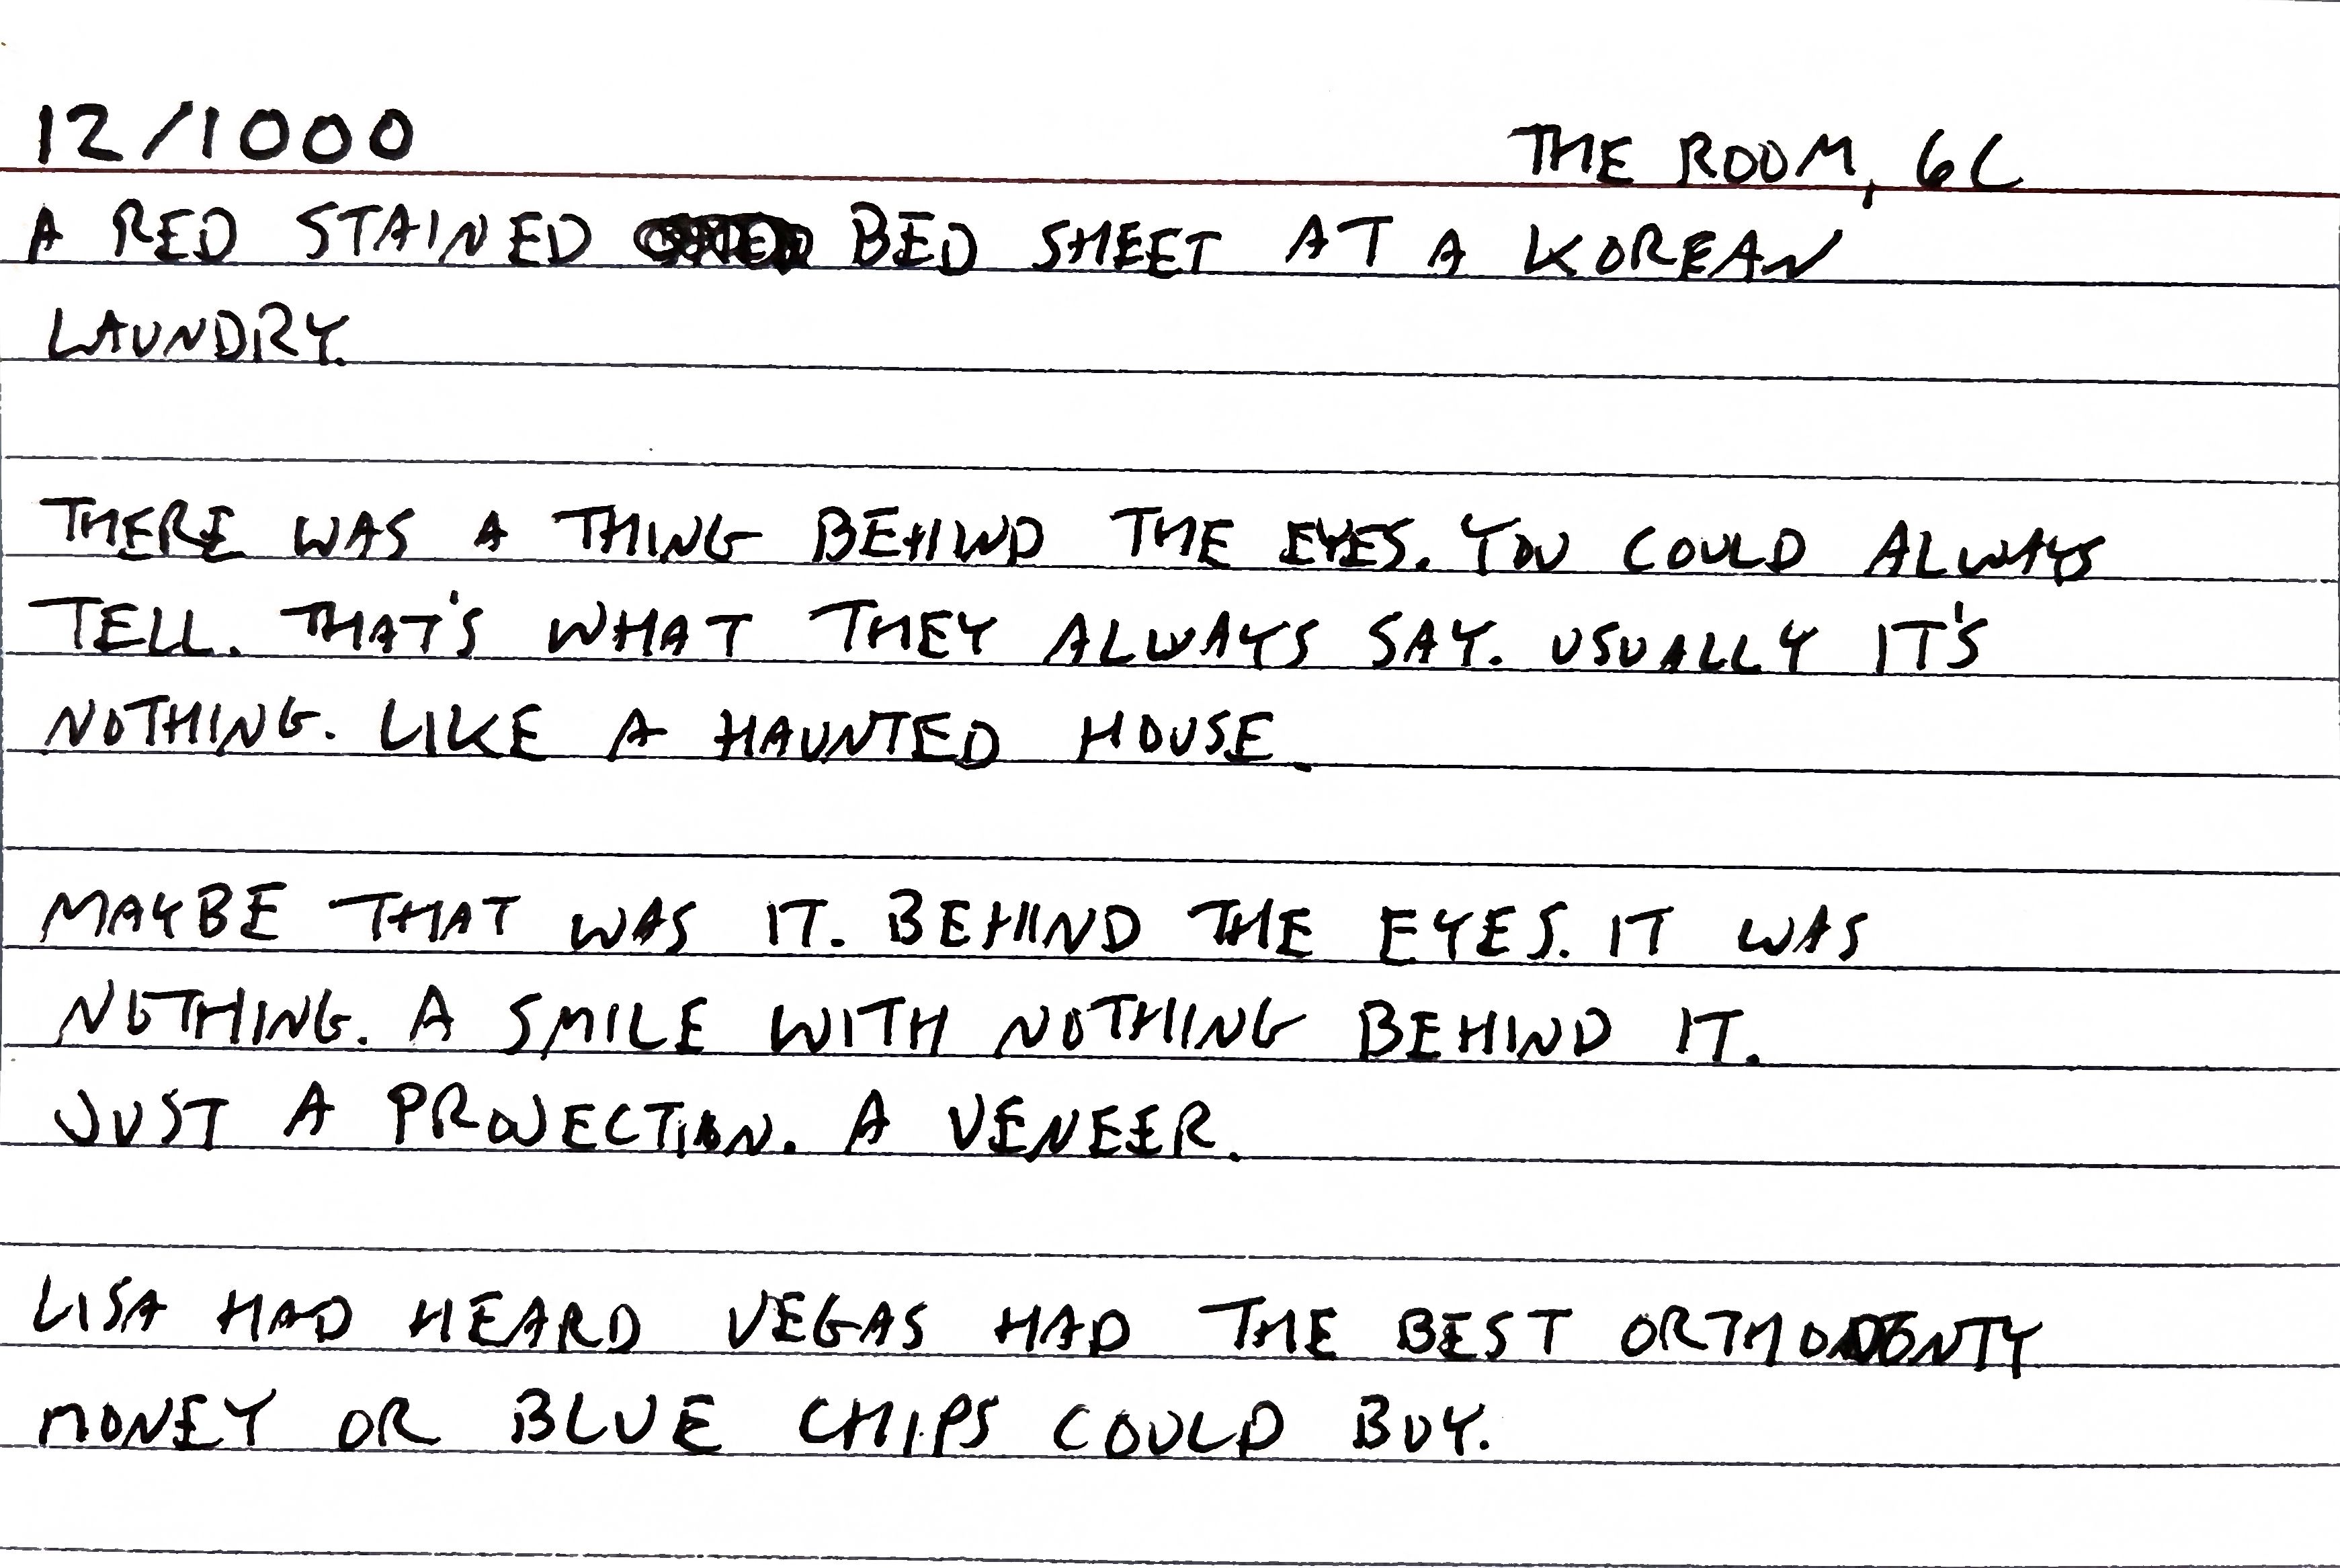 12/1000
THE ROOM, 6C
A RED STAINED BED SHEET AT A KOREAN
LAUNDRY.
THERE WAS A THING BEHIND THE EYES. YOU COULD ALWAYS
TELL. THAT'S WHAT THEY ALWAYS SAY. USUALLY IT'S
NOTHING. LIKE A HAUNTED HOUSE.
MAYBE THAT WAS IT. BEHIND THE EYES. IT WAS
NOTHING. A SMILE WITH NOTHING BEHIND IT.
JUST A PROJECTION. A VENEER.
LISA HAD HEARD VEGAS HAD THE BEST ORTHODONTY
MONEY OR BLUE CHIPS COULD BUY.